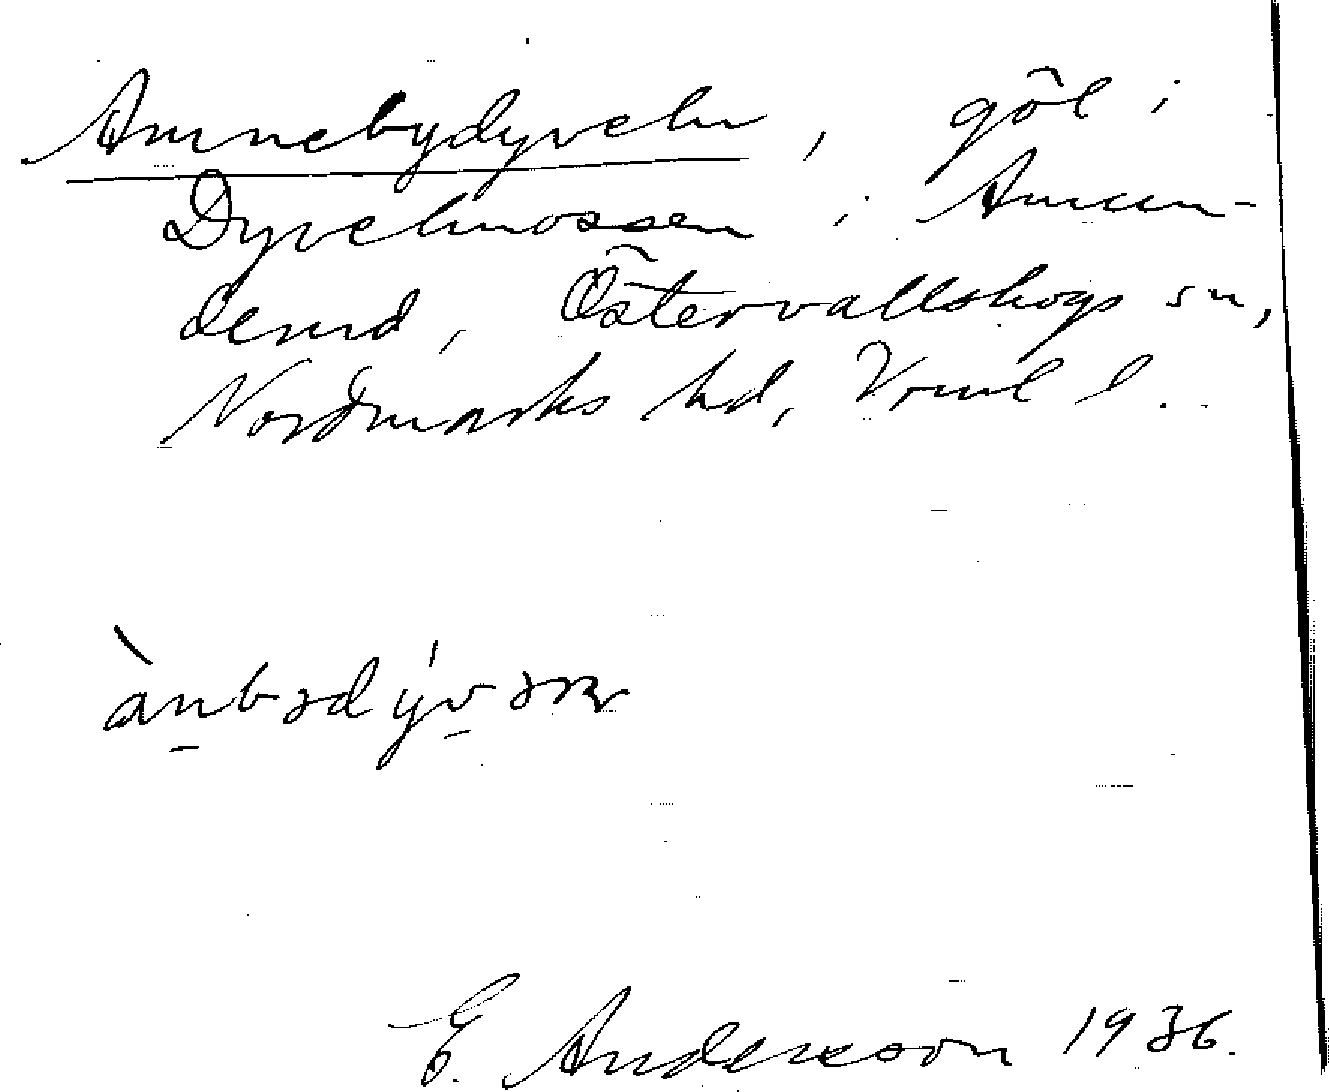 Annebydyveln, göl i
Dyvelmossen i Amun-
derud, Östervallskogs sn,
Nordmarks hd, Vrml l.
ànbədýv
E. Andersson 1936.